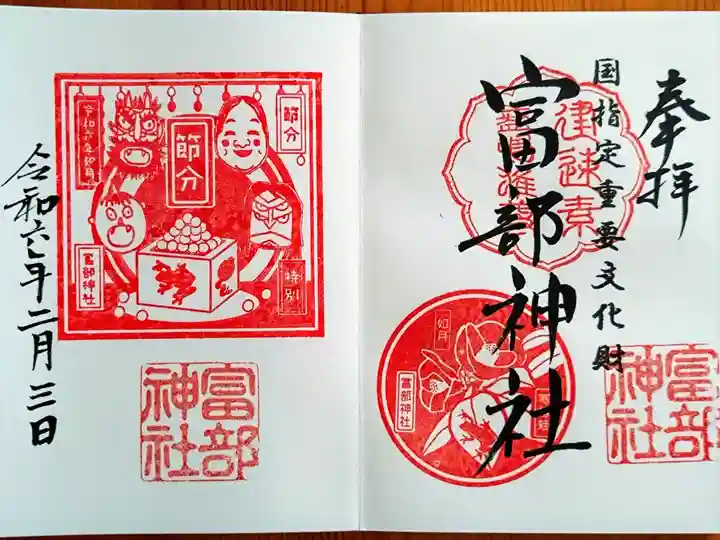 奉拝
国指定重要文化財
富部神社
富部神社
如月
富部神社
節分
節分
令和六年如月
特別
富部神社
富部神社
令和六年二月三日